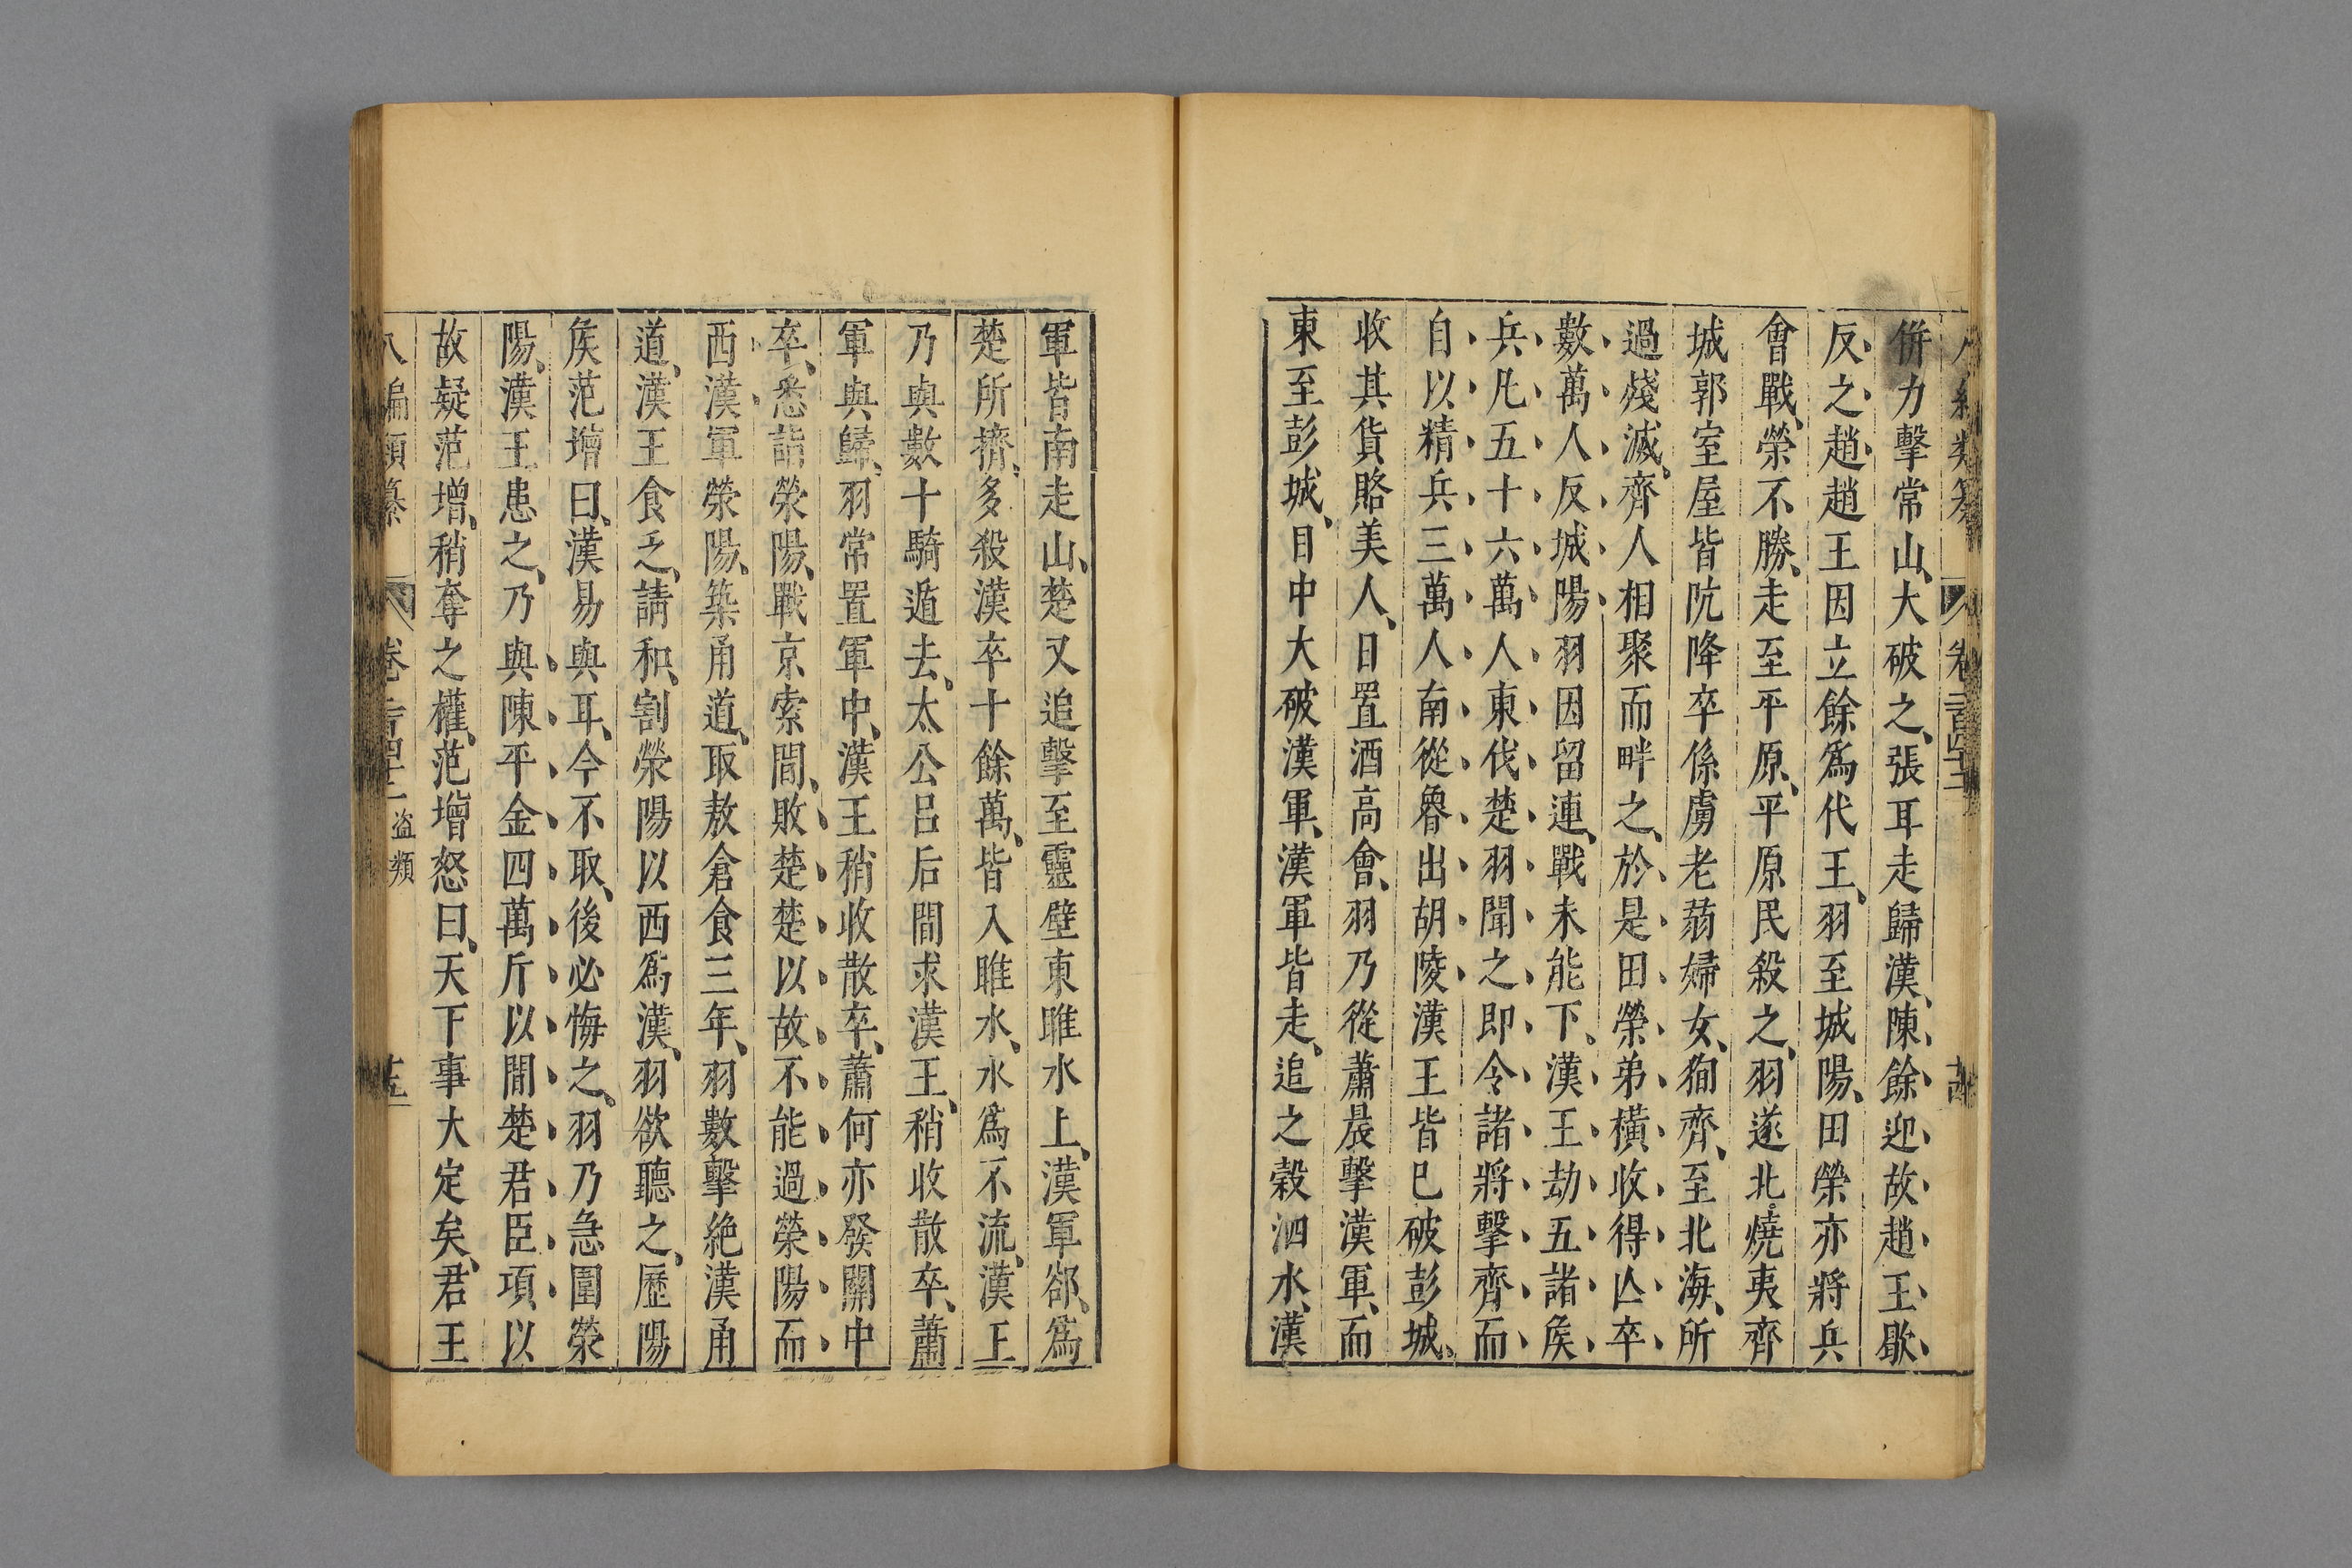 併力擊常山、大破之、張耳走歸漢、陳餘迎故趙王歇
反之趙、趙王因立餘爲代王、羽至城陽、田榮亦將兵
會戰、榮不勝、走至平原、平原民殺之、羽遂北燒夷齊
城郭室屋皆阬降卒係虜老蒻婦女、狥齊、至北海、所
過殘滅、齊人相聚而畔之、於是田榮弟橫收得亾卒
數萬人反城陽羽因留連、戰未能下、漢王劫五諸矦
兵凡五十六萬人東伐楚羽聞之即令諸將擊齊而
自以精兵三萬人南從魯出胡陵漢王皆已破彭城、
收其貨賂美人、日置酒高會、羽乃從蕭晨擊漢軍、而
東至彭城、日中大破漢軍、漢軍皆走、追之穀泗水、漢
軍皆南走山、楚又追擊至靈壁東睢水上、漢軍郤、爲
楚所擠、多殺漢卒十餘萬、皆入睢水、水爲不流、漢王
乃與數十騎遁去、太公呂后間求漢王、稍收散卒、蕭
軍與歸、羽常置軍中、漢王稍收散卒、蕭何亦發關中
卒、悉詣滎陽、戰京索間、敗楚、楚以故不能過滎陽而
西漢軍滎陽、築甬道、取敖倉食三年、羽數擊絕漢甬
道、漢王食乏、請和、割滎陽以西爲漢、羽欲聽之、歷陽
矦范增曰、漢易與耳、今不取、後必悔之、羽乃急圍滎
陽、漢王患之、乃與陳平金四萬斤以間楚君臣、項以
故疑范增、稍奪之權、范增怒曰、天下事大定矣、君王
八編類纂 卷二百四十二 盜類 十五